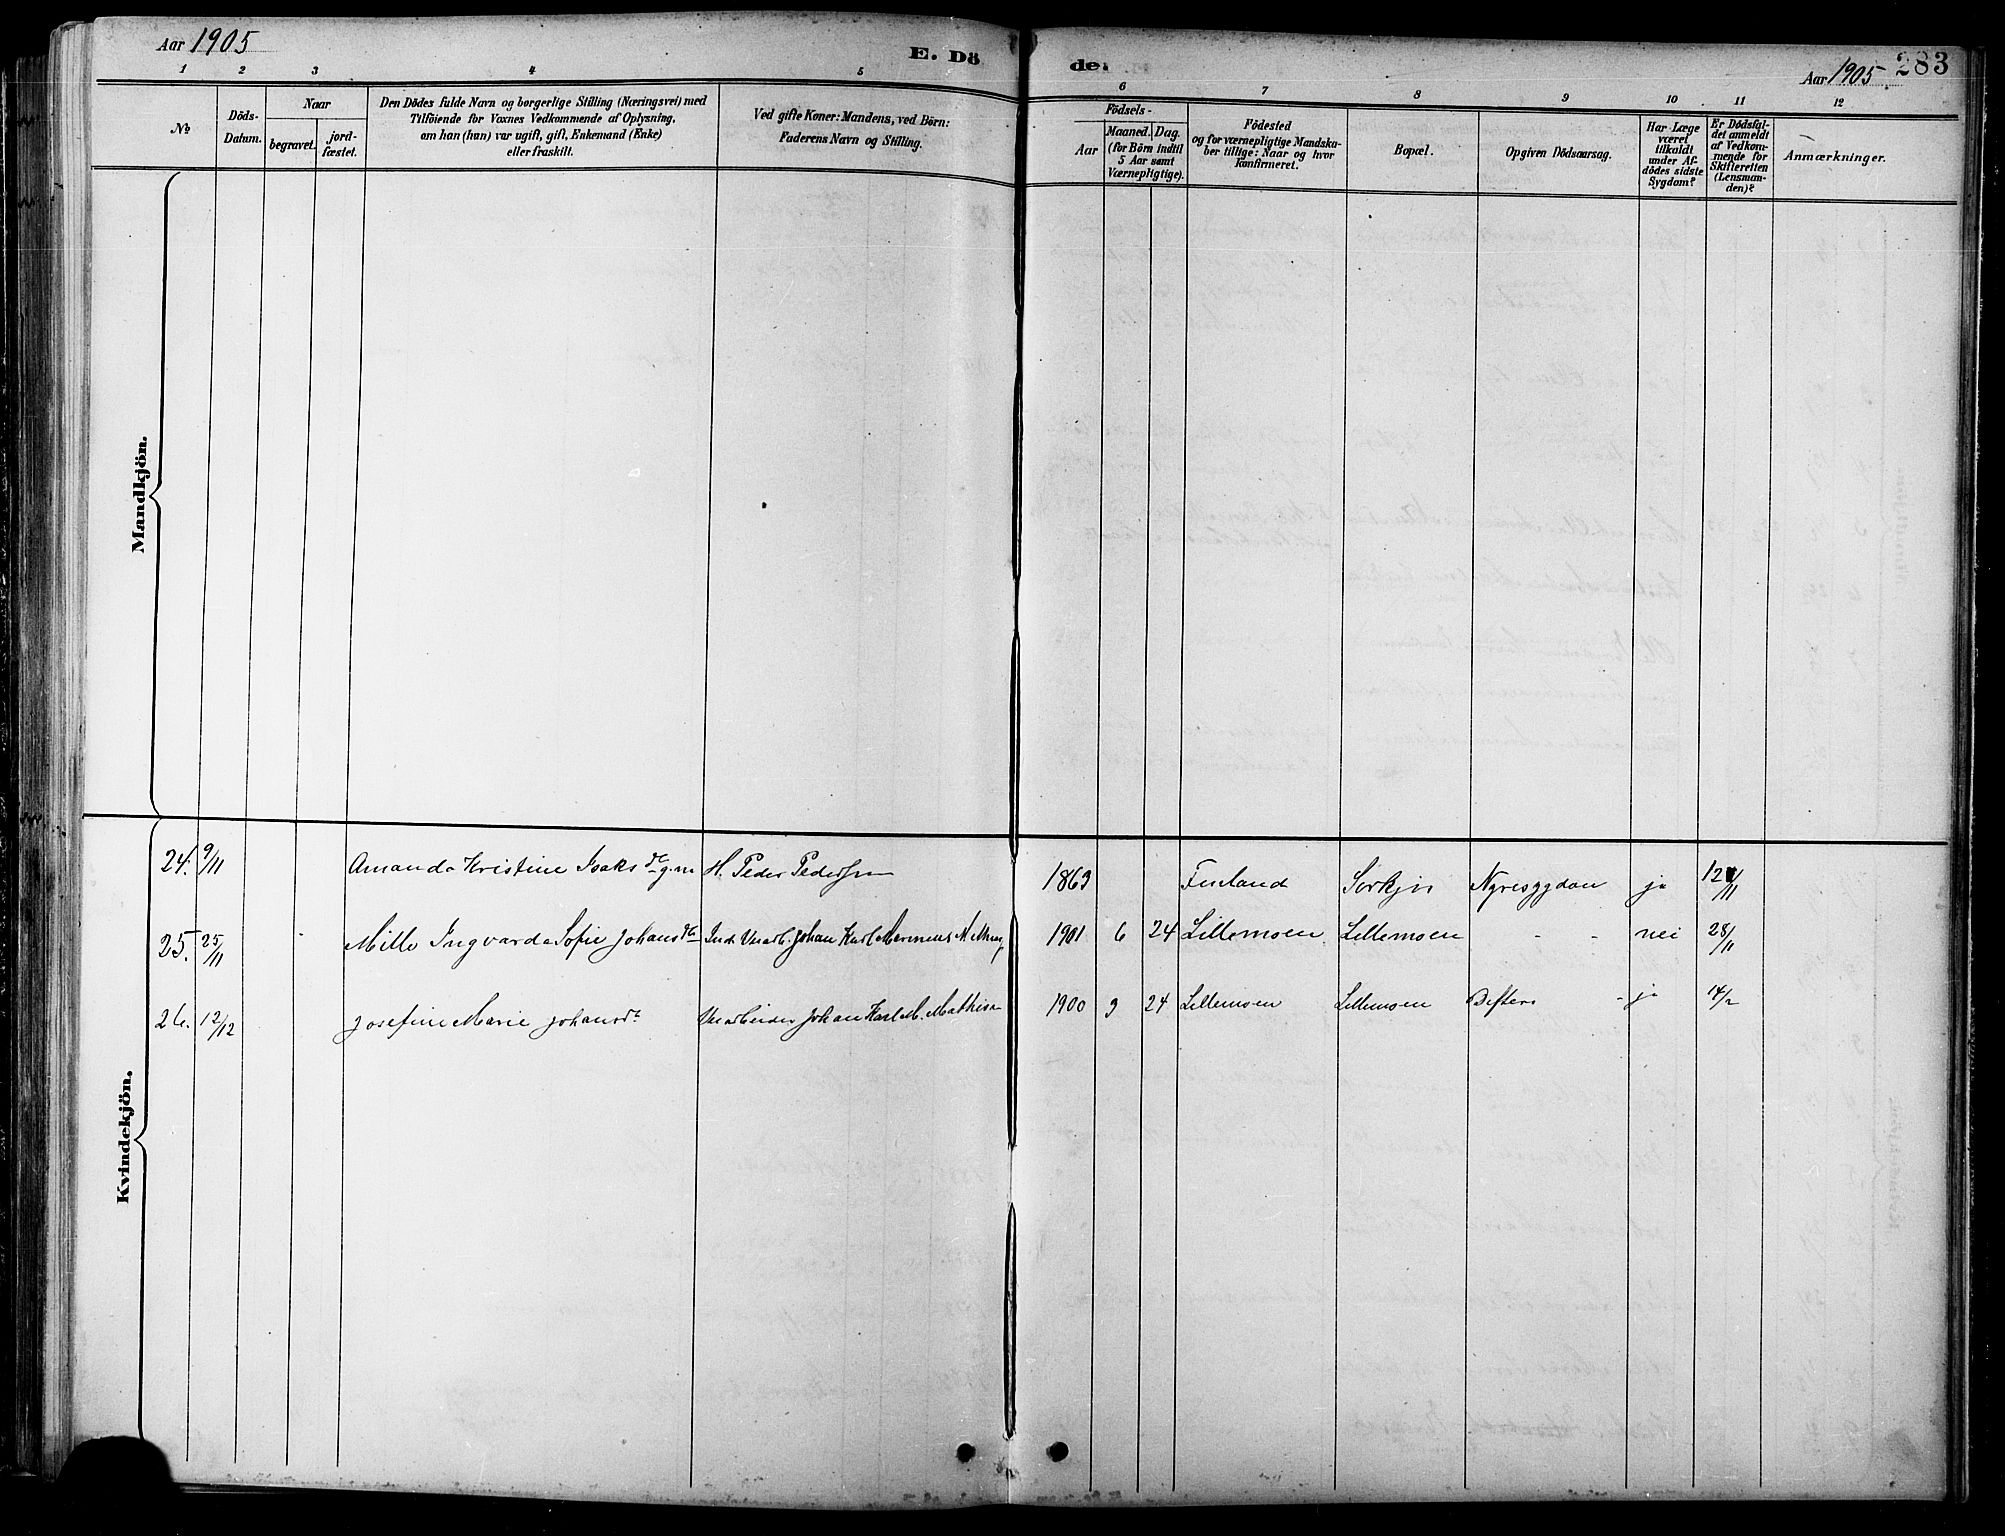 Aar 1905
E. Dö
de.
Aar 1905
283
1 2 3 4 5 6 7 8 9 10 11 12
No
Döds-
Datum.
Naar
begravet.
jord-
fæstet.
Den Dödes fulde Navn og borgerlige Stilling (Næringsvei) med
Tilföiende for Voxnes Vedkommende af Oplysning,
om han (hun) var ugift, gift, Enkemand (Enke)
eller fraskilt.
Ved gifte Koner: Mandens, ved Börn:
Faderens Navn og Stilling.
Födsels-
Aar
Maaned.
Dag.
(for Börn indtil
5 Aar samt
Værnepligtige).
Födested
og for værnepligtige Mandska-
ber tillige: Naar og hvor
Konfirmeret.
Bopæl.
Opgiven Dödsaarsag.
Har Læge
været
tilkaldt
under Af-
dödes sidste
Sygdom?
Er Dödsfal-
det anmeldt
af Vedkom-
mende for
Skifteretten
(Lensman-
den)?
Anmærkninger.
Mandkjön.
Kvindekjön.
24. 9/11 Amanda Kristine Isaksdt. g.m. H. Peder Pedersen 1863 Finland Sörkjos Nyresygdom ja 12/11
25. 25/11 Mille Ingvarda Sofie Johansdt. Johan Karl 1901 6 24 Lillemoen Lillemoen - - nei 28/11
26. 12/12 Josefine Marie Johansdt. Johan Karl M. Mathisen 1900 3 24 Lillemoen Lillemoen Difteri - ja 14/2